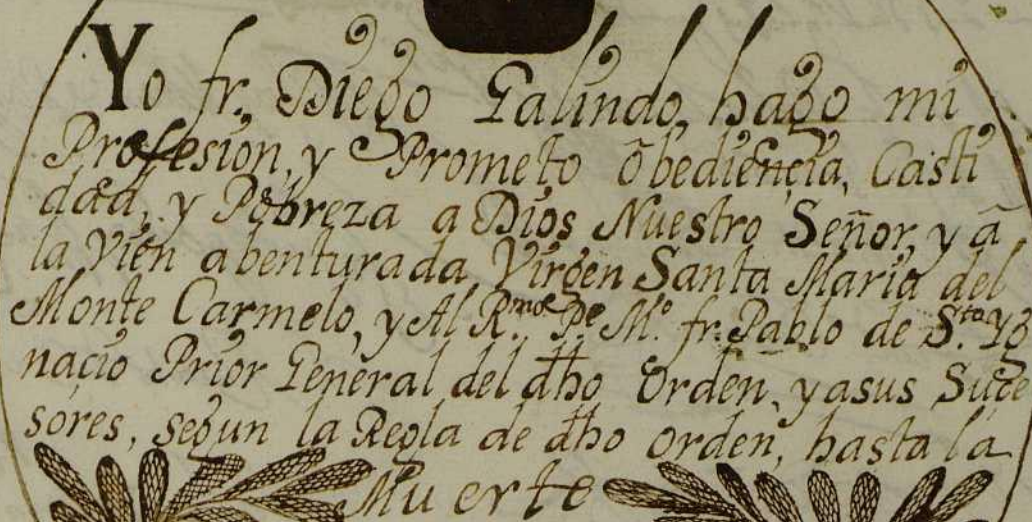 Yo fr. Diego Galindo, hago mi
Profesion, y Prometo õbediençia, Casti
dad, y Pobreza a Dios Nuestro Señor, y ã
la Vien abenturada Virgen Santa Maria del
Monte Carmelo, y Al R.mo Pe. Mº. fr. Pablo de S.to Yg
naçio Prior General del dho Orden, y asus Suçe
sores, segun la Regla de dho orden, hasta la
Muerte